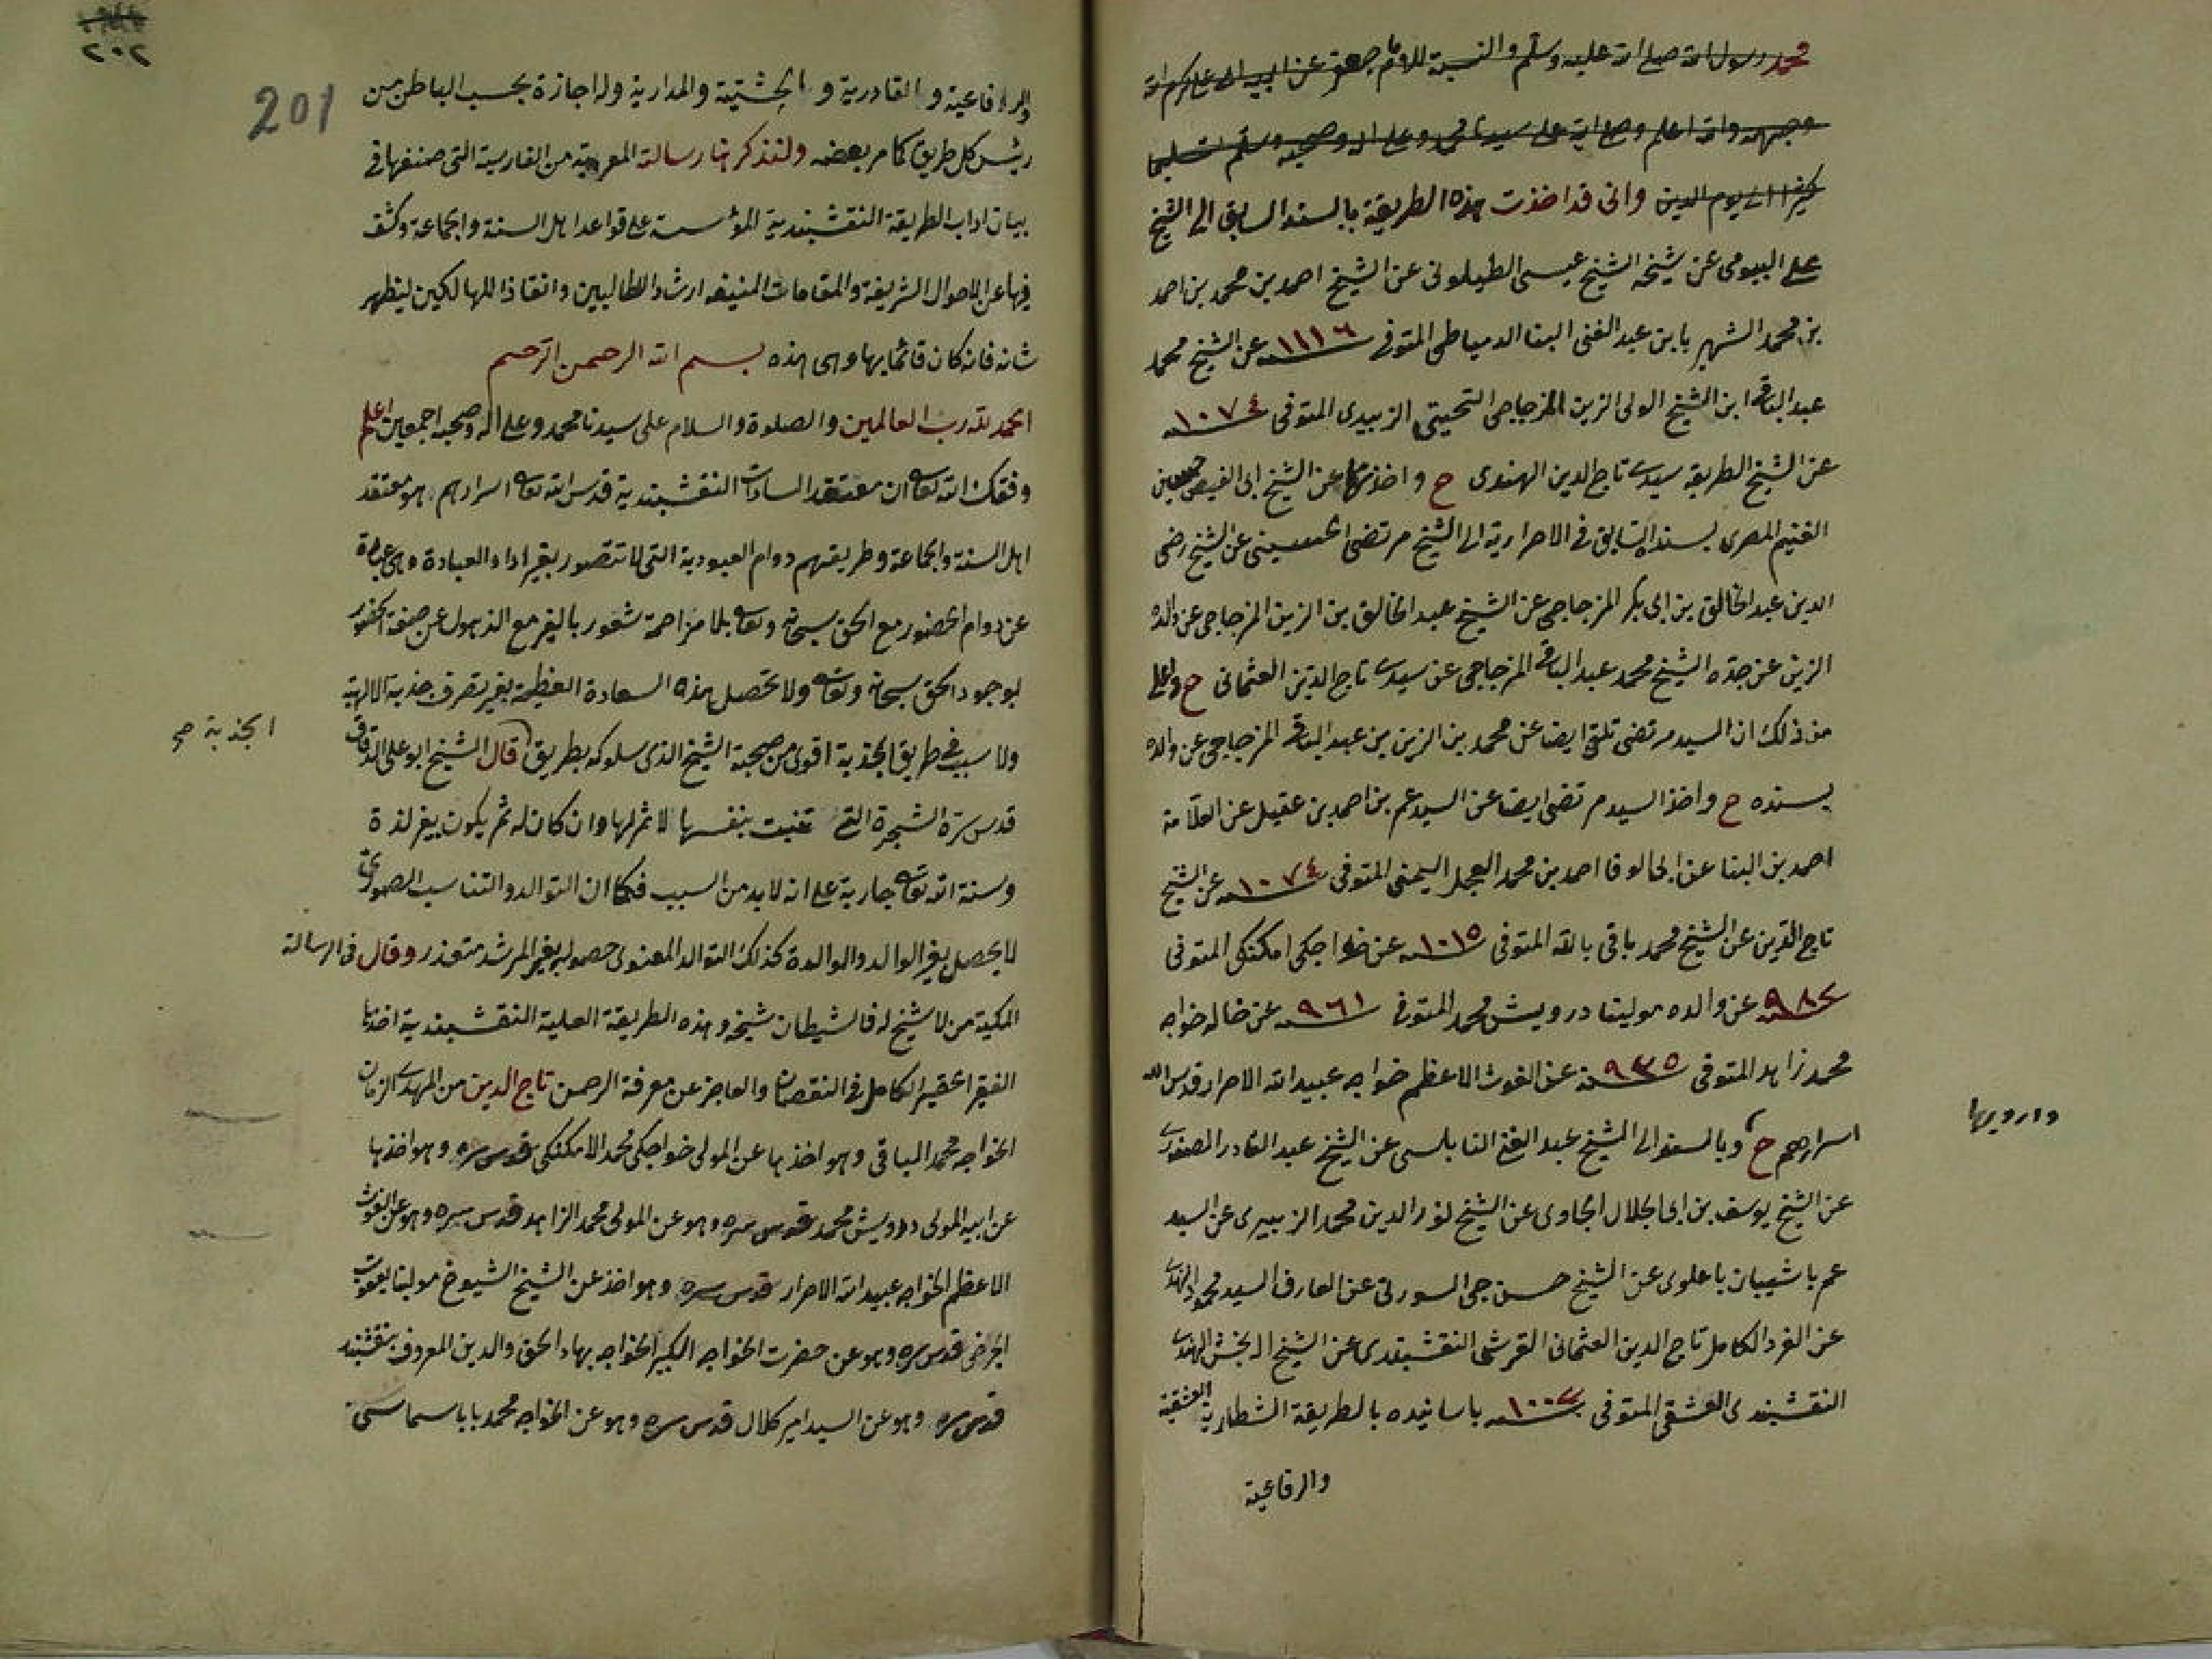 محمد رسول الله صلى الله عليه وسلم والنسبة للامام جعفر عن ابيه الى على كرم الله
وجهه والله اعلم وصلى الله على سيدنا محمد وعلى اله وصحبه وسلم تسليما
كثيرا الى يوم الدين وانى قد اخذت هذه الطريقة بالسند السابق الى الشيخ
على البيومى عن شيخه الشيخ عيسى الطيلونى عن الشيخ احمد بن محمد بن احمد
بن محمد الشهير بابن عبد الغنى البنا الدمياطى المتوفى سنة ١١١٦ عن الشيخ محمد
عبد الباقى ابن الشيخ الولى الزين المزجاجى التحيتى الزبيدى المتوفى سنة ١٠٧٤
عن الشيخ الطريقه سيدى تاج الدين الهندى ح واخذتها عن الشيخ ابى الفيض حسين
الغنيم المصرى بسنده السابق فى الاحرارية الى الشيخ مرتضى الحسينى عن الشيخ رضى
الدين عبد الخالق بن ابى بكر المزجاجى عن الشيخ عبد الخالق بن الزين المزجاجى عن والده
الزين عن جده الشيخ محمد عبد الباقى المزجاجى عن سيدى تاج الدين العثمانى ح واعلى
من ذلك ان السيد مرتضى تلقى ايضا عن محمد بن الزين بن عبد الباقى المزجاجى عن والده
بسنده ح واخذ السيد مرتضى ايضا عن السيد عمر بن احمد بن عقيل عن العلامة
احمد بن البنا عن ابى الوفا احمد بن محمد العجل اليمنى المتوفى سنة ١٠٧٤ عن الشيخ
تاج الدين عن الشيخ محمد باقى بالله المتوفى سنة ١٠١٥ عن خواجكى امكنكى المتوفى
سنة ٩٨٢ عن والده مولينا درويش محمد المتوفى سنة ٩٦١ عن خاله خواجه
محمد زاهد المتوفى سنة ٩٣٥ عن الغوث الاعظم خواجه عبيد الله الاحرار قدس الله
اسرارهم ح وبالسند الى الشيخ عبد الغنى النابلسى عن الشيخ عبد القادر الصفورى
وارويها
عن الشيخ يوسف بن ابى الجلال الجاوى عن الشيخ نور الدين محمد الزبيرى عن السيد
عمر باشيبان باعلوى عن الشيخ حسن جى السورتى عن العارف السيد محمود الهندى
عن الفرد الكامل تاج الدين العثمانى القرشى النقشبندى عن الشيخ اله بخش الهندى
النقشبندى العشقى المتوفى سنة ١٠٠٢ باسانيده بالطريقة الشطارية العشقية
والرفاعية
٢٠٢
201
والرفاعية والقادرية والجشتية والمدارية وله اجازة بحسب الباطن من
رئيس كل طريق كما مر بعضه ولنذكر هنا رسالته المعربة من الفارسية التى صنفها فى
بيان اداب الطريقة النقشبندية المؤسسة على قواعد اهل السنة والجماعة وكشف
فيها عن الاحوال الشريفة والمقامات المنيفه ارشادا للطالبين وانقاذا للهالكين ليظهر
شانه فانه كان قائما بها وهى هذه بسم الله الرحمن الرحيم
الحمد لله رب العالمين والصلوة والسلام على سيدنا محمد وعلى اله وصحبه اجمعين اعلم
وفقك الله تعالى ان معتقد السادات النقشبندية قدس الله تعالى اسرارهم هو معتقد
اهل السنة والجماعة وطريقتهم دوام العبودية التى لا تتصور بغير اداء العبادة وهى عبارة
عن دوام الحضور مع الحق سبحانه وتعالى بلا مزاحمة شعور بالغير مع الذهول عن صفة الحضور
بوجود الحق سبحانه وتعالى ولا تحصل هذه السعادة العظيمة بغير تصرف جذبة الالهية
ولا سبب فى طريق الجذبة اقوى من صحبة الشيخ الذى سلوكه بطريق قال الشيخ ابو على الدقاق
الجذبة صح
قدس سره الشجرة التى تنبت بنفسها لا ثمر لها وان كان له ثمر يكون بغير لذة
وسنة الله تعالى جارية على انه لا بد من السبب فكما ان التوالد والتناسب الصورى
لا يحصل بغير الوالد والوالدة كذلك التوالد المعنوى حصوله بغير المرشد متعذر وقال فى الرسالة
المكية من لا شيخ له فالشيطان شيخه وهذه الطريقة العلية النقشبندية اخذها
الفقير الحقير الكامل فى النقصان والعاجز عن معرفة الرحمن تاج الدين من المهدى الزمان
الخواجه محمد الباقى وهو اخذها عن المولى خواجكى محمد الامكنكى قدس سره وهو اخذها
عن ابيه المولى درويش محمد قدس سره وهو عن المولى محمد الزاهد قدس سره وهو عن الغوث
الاعظم الخواجه عبيد الله الاحرار قدس سره وهو اخذ عن الشيخ الشيوخ مولينا يعقوب
الجرخى قدس سره وهو عن حضرت الخواجه الكبير الخواجه بهاء الحق والدين المعروف بنقشبند
قدس سره وهو عن السيد امير كلال قدس سره وهو عن الخواجه محمد بابا سماسى